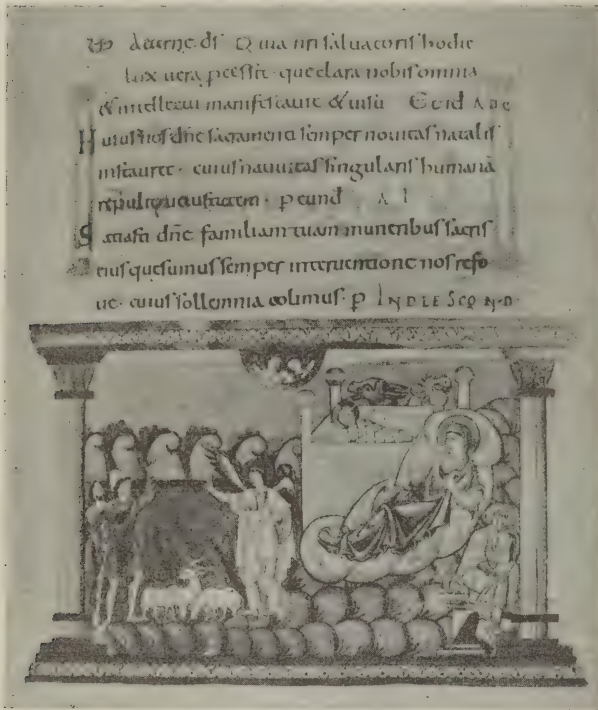 aeterne ds Quia nri saluatoris hodie
lux uera pcessit · que clara nobis omnia
& intellectui manifestauit & uisu
Huius nos dne sacramenti semper nouitas natalis
instauret · cuius natiuitas singularis humana
reppulit uetustatem · p eund AL
Satiasti dne familiam tuam muneribus sacris
eius quesumus semper interuentione nos refo
ue · cuius sollemnia colimus · p IN DLE SCQ